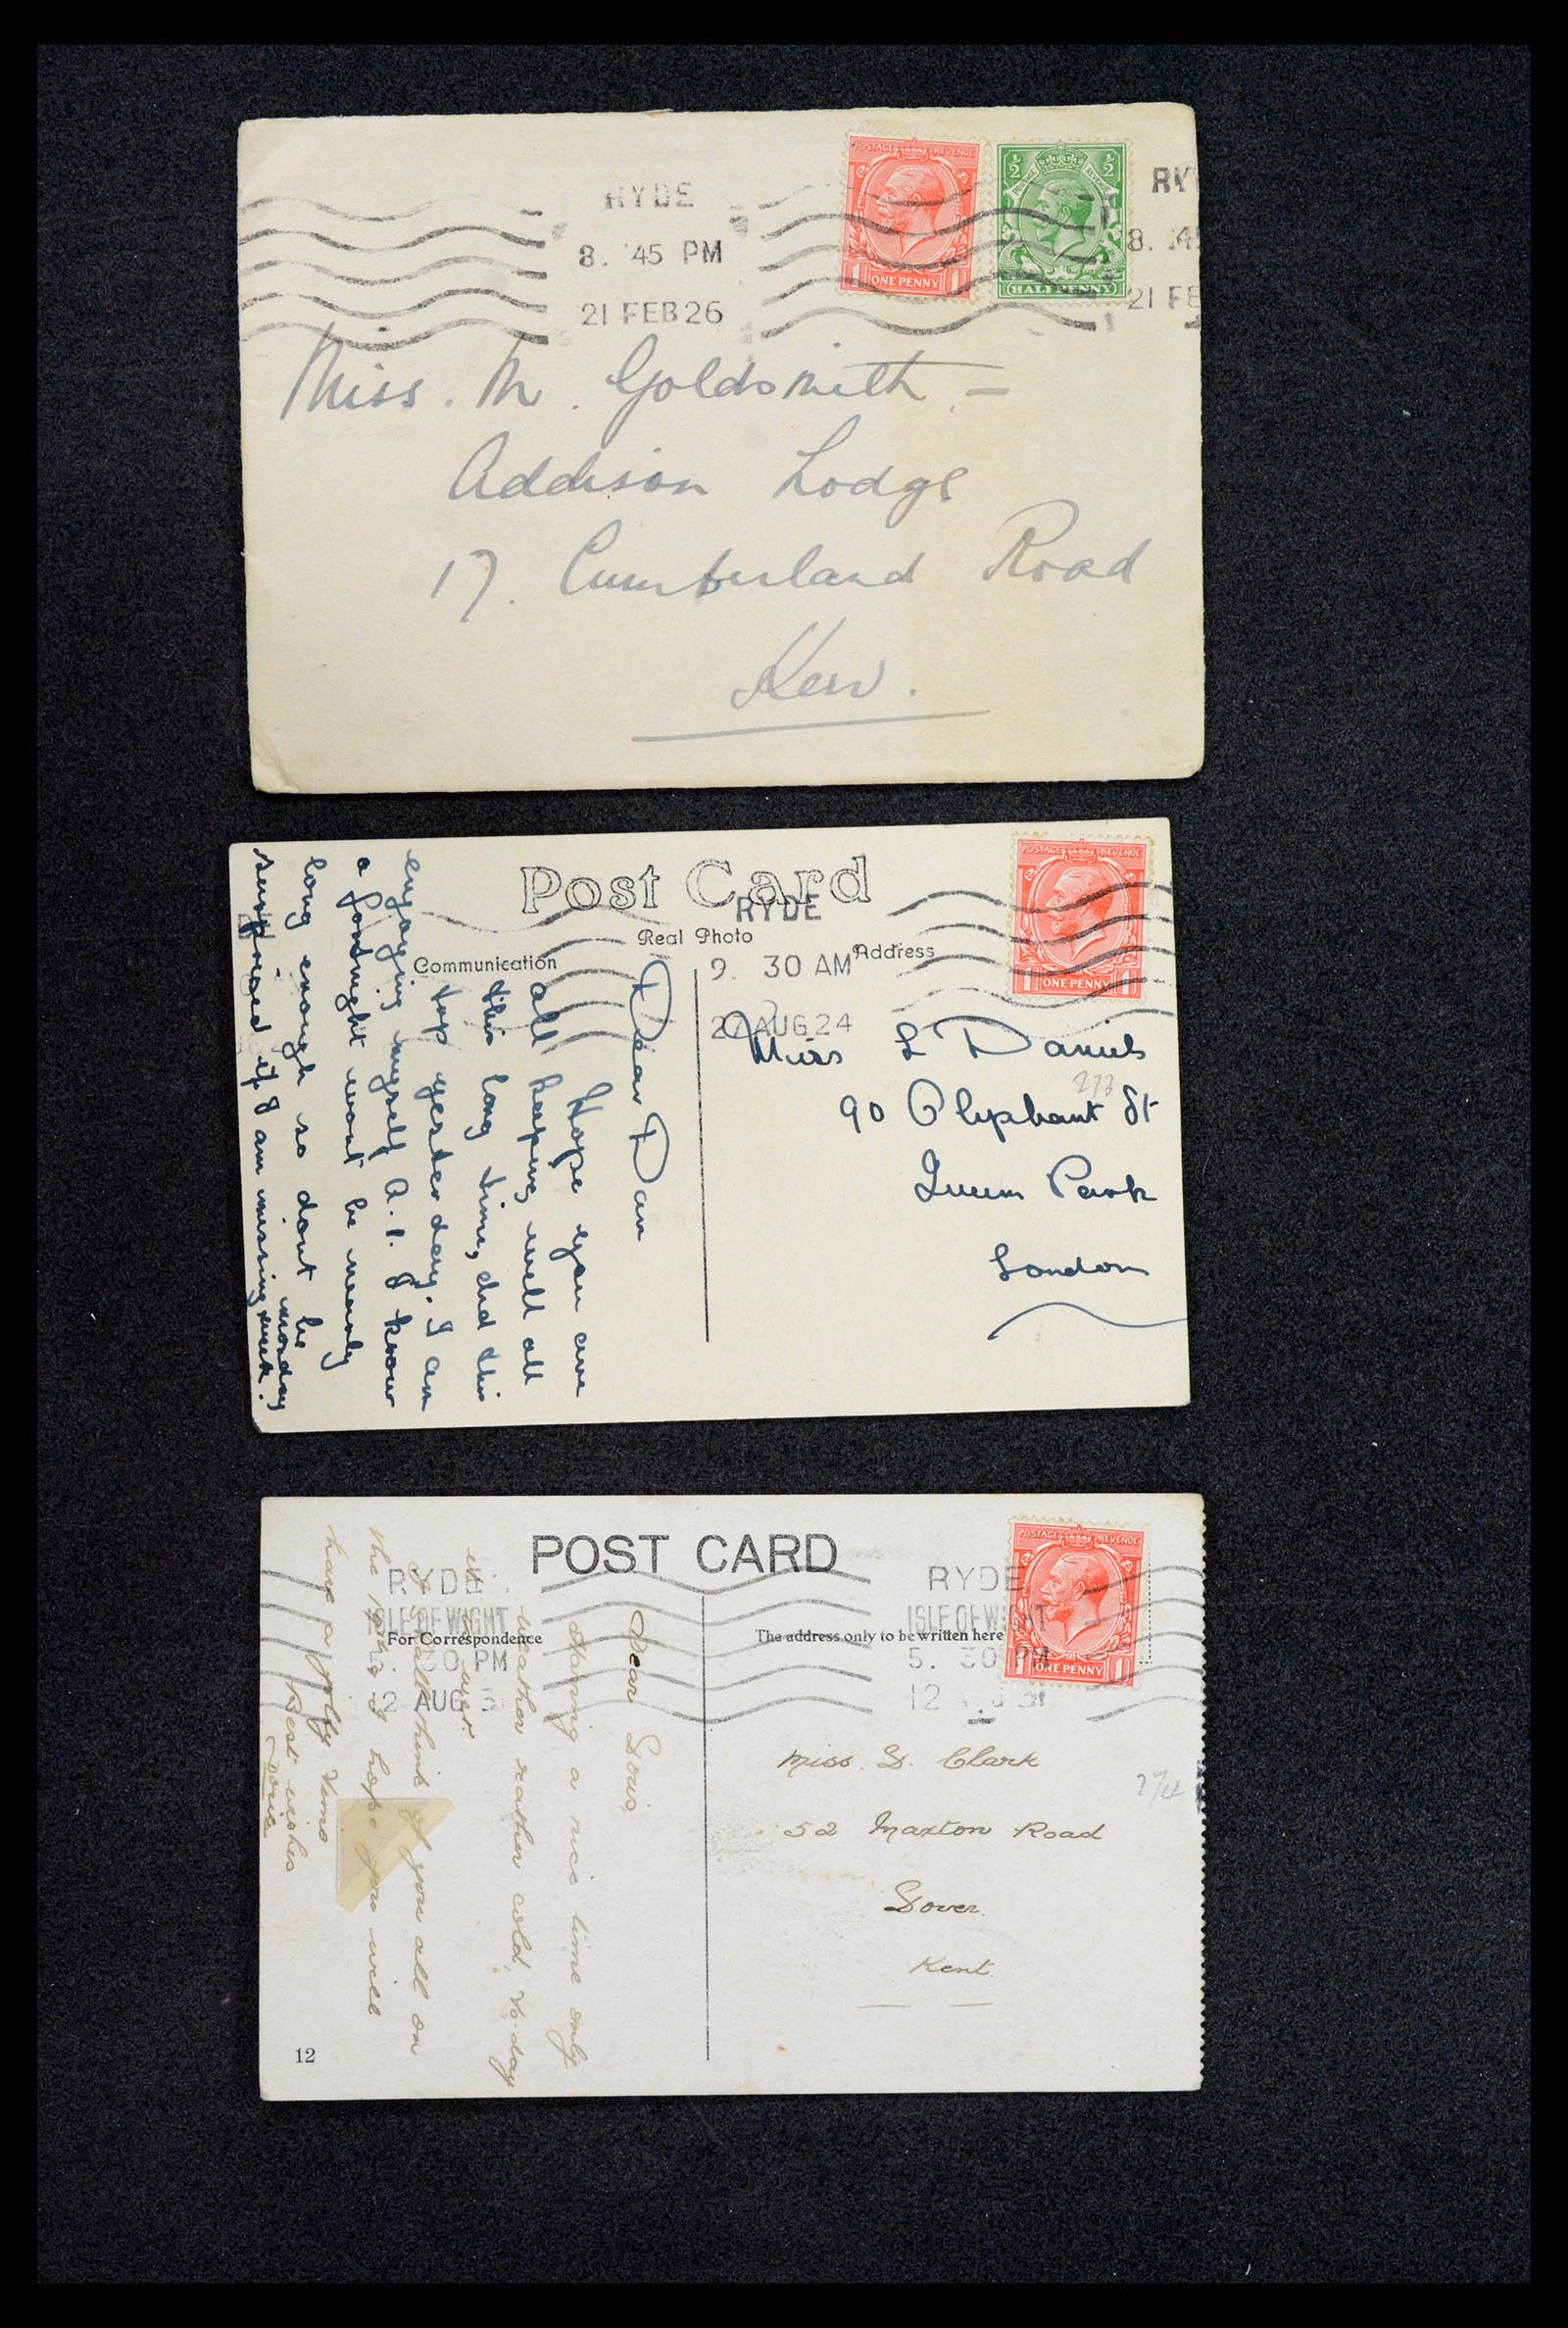 RYDE
8. 45 PM
21 FEB 26
POSTAGE REVENUE
ONE PENNY
½ ½
HALFPENNY
RY
8. 45
21 FE
Miss. M. Goldsmith -
Addison Lodge
17. Cumberland Road
Kew.
Post Card
Real Photo
Communication
Address
RYDE
9. 30 AM
AUG 24
POSTAGE REVENUE
1 ONE PENNY 1
Dear Dan
Hope you are
all keeping well all
this long time, had this
top yesterday. I am
enjoying myself A.1. I know
a fortnight wont be nearly
long enough so dont be
surprised if I am missing monday
week.
Miss L Daniels
273
90 Oliphant St
Queens Park
London
POST CARD
For Correspondence
The address only to be written here
RYDE
ISLE OF WIGHT
30 PM
2 AUG
RYDE
ISLE OF WIGHT
5. 30 PM
12
POSTAGE REVENUE
1 ONE PENNY 1
Dear Doris,
Having a nice time only
weather rather cold, to-day
it is
I shall think of you all on
the 19th & I hope you will
have a jolly time
Best wishes
Miss. D. Clark
274
52 Maxton Road
Dover.
Kent.
12